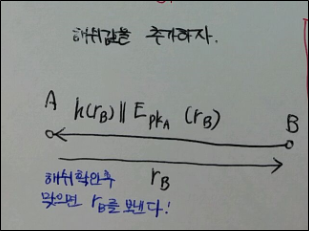 해쉬값을 추가하자.
A h(r_B) || E_{pk_A} (r_B) B
r_B
해쉬확인후
맞으면 r_B를 보낸다!